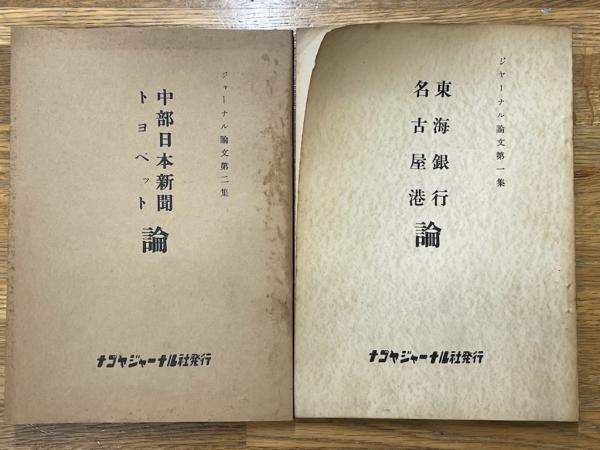 ジャーナル論文第二集
中部日本新聞
トヨペット
論
ナゴヤジャーナル社発行
ジャーナル論文第一集
東海銀行
名古屋港
論
ナゴヤジャーナル社発行